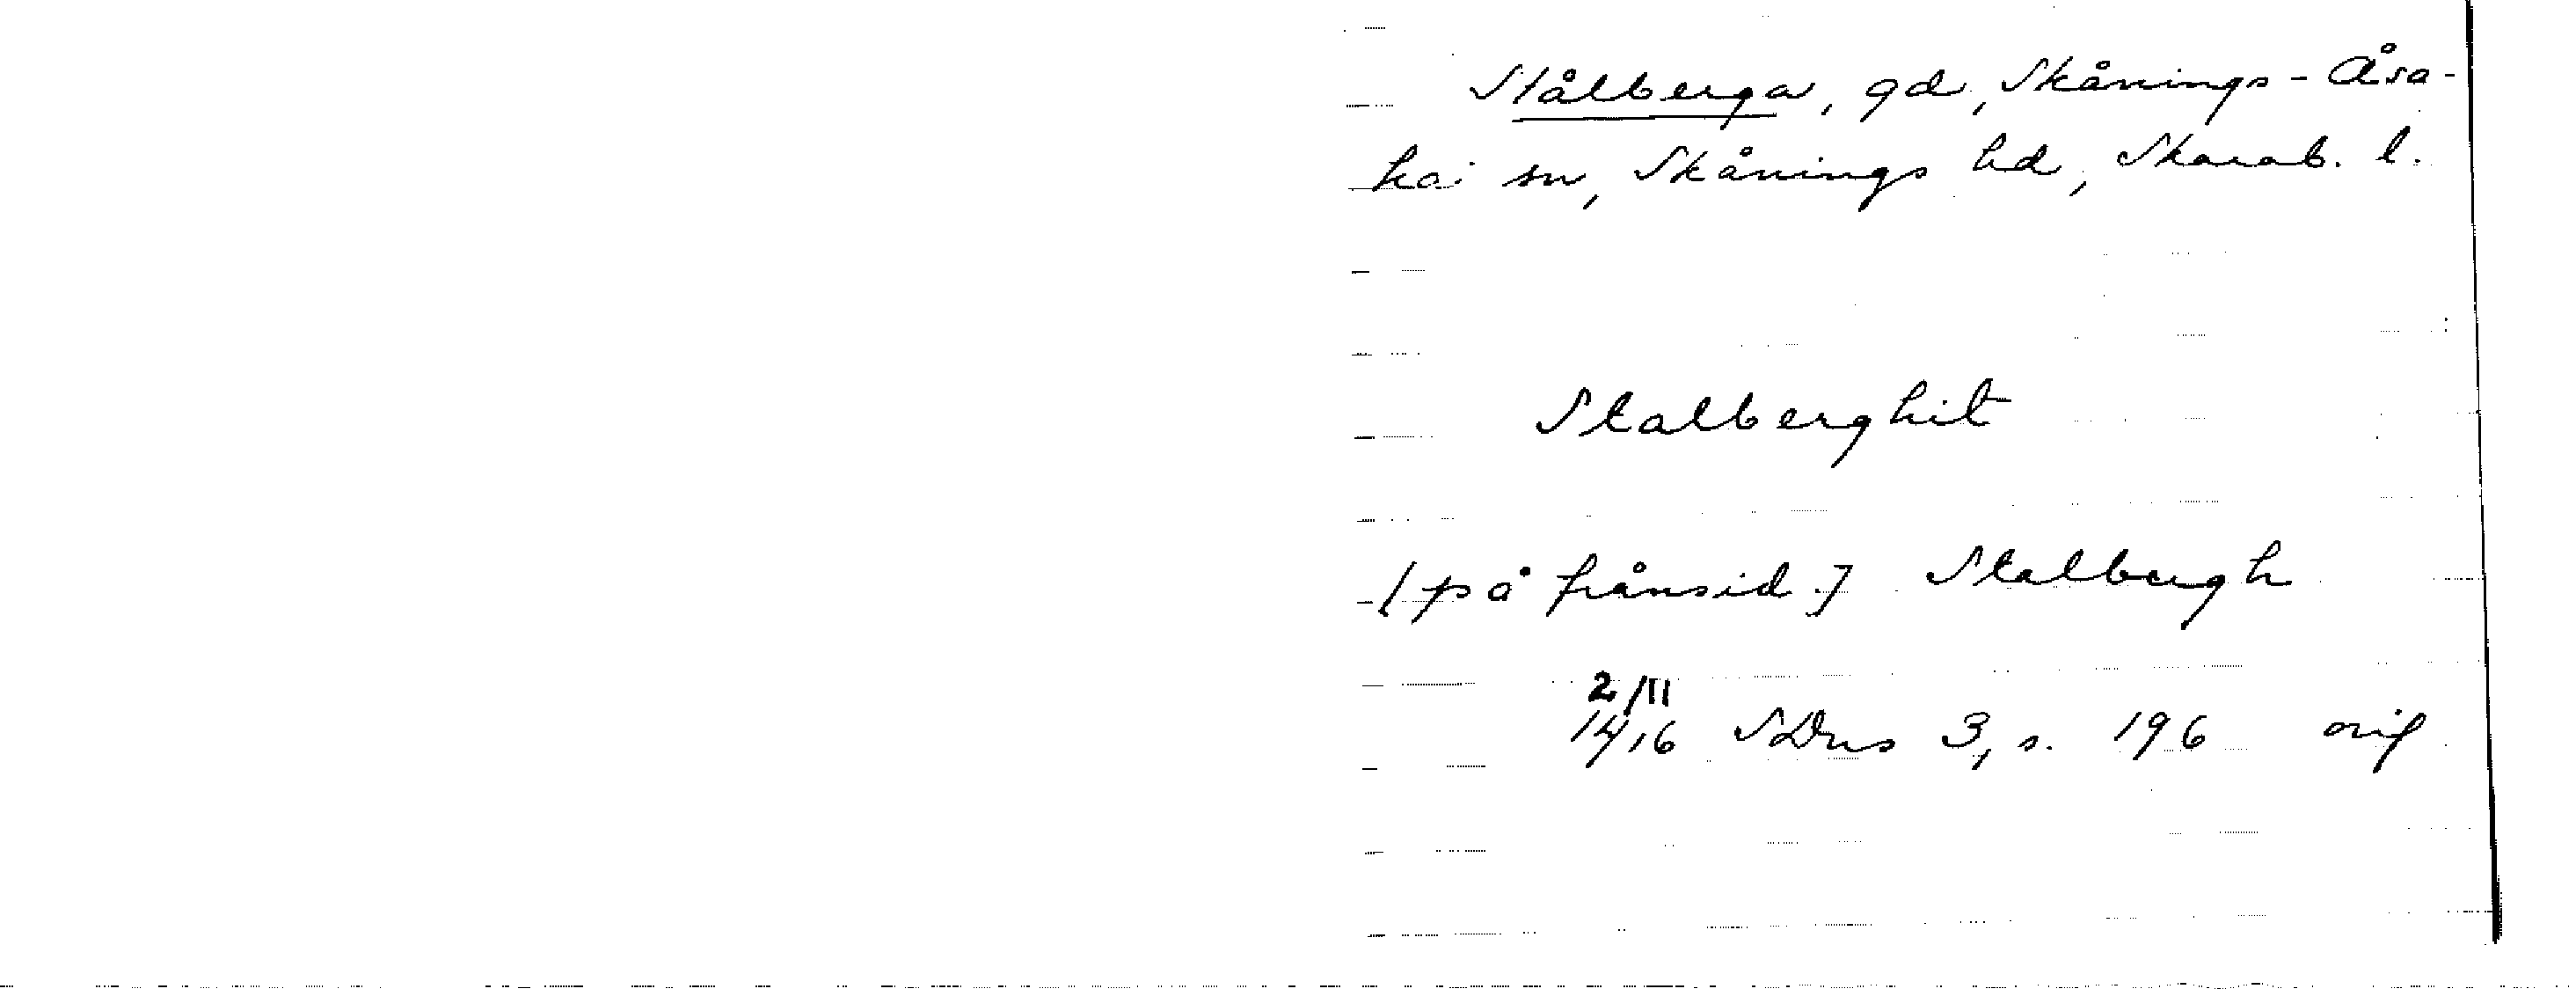 Stålberga, gd, Skånings-Åsa-
ka sn, Skånings hd, Skarab. l.
Stalberghit
[på frånsid.] Stalbergh
2/11
1416 SDns 3, s. 196 orig